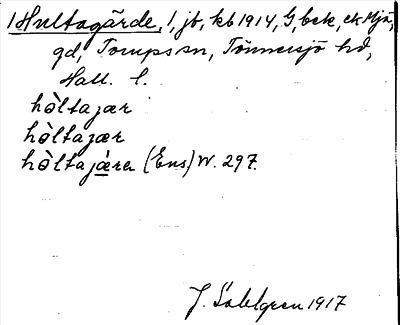 1 Hultagärde, 1, jb, kb 1914, G, bek, ek Mjä,
gd, Torups sn, Tönnersjö hd,
Hall. l.
hòltajær
hòltajær
hòltajæ̀ra (Ens) W. 297.
J. Sahlgren 1917